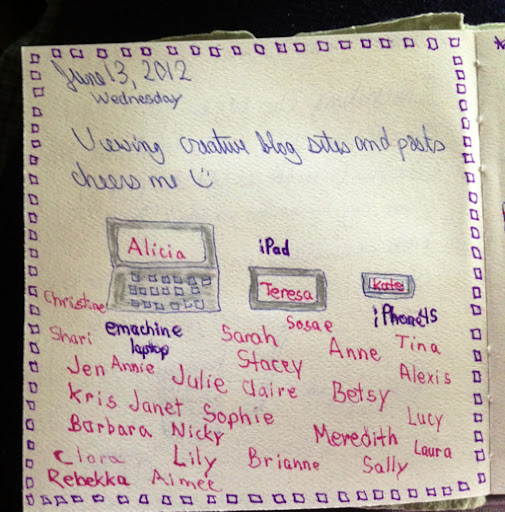 June 13, 2012
Wednesday
Viewing creative blog sites and posts
cheers me
Alicia
iPad
Teresa
Kate
Christine
emachine
laptop
Sosae
iPhone4S
Shari
Sarah
Anne
Tina
Jen
Annie
Stacey
Alexis
Julie
Claire
Betsy
Kris
Janet
Sophie
Lucy
Barbara
Nicky
Meredith
Laura
Clara
Lily
Brianne
Sally
Rebekka
Aimee